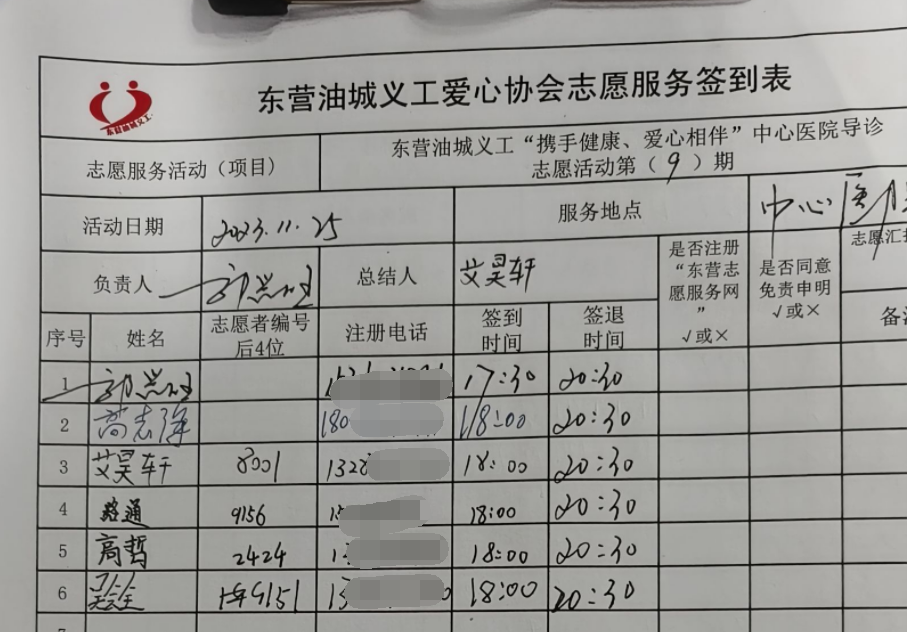 东营油城义工
东营油城义工爱心协会志愿服务签到表
志愿服务活动（项目）
东营油城义工“携手健康、爱心相伴”中心医院导诊
志愿活动第（9）期
活动日期
2023.11.25
服务地点
中心医
负责人
总结人
艾昊轩
是否注册
“东营志
愿服务网
”
√或×
是否同意
免责申明
√或×
志愿汇
序号
姓名
志愿者编号
后4位
注册电话
签到
时间
签退
时间
备注
1
17:30
20:30
2
180
18:00
20:30
3
艾昊轩
8001
1328
18:00
20:30
4
路通
9156
18:00
20:30
5
高哲
2424
18:00
20:30
6
9151
18:00
20:30